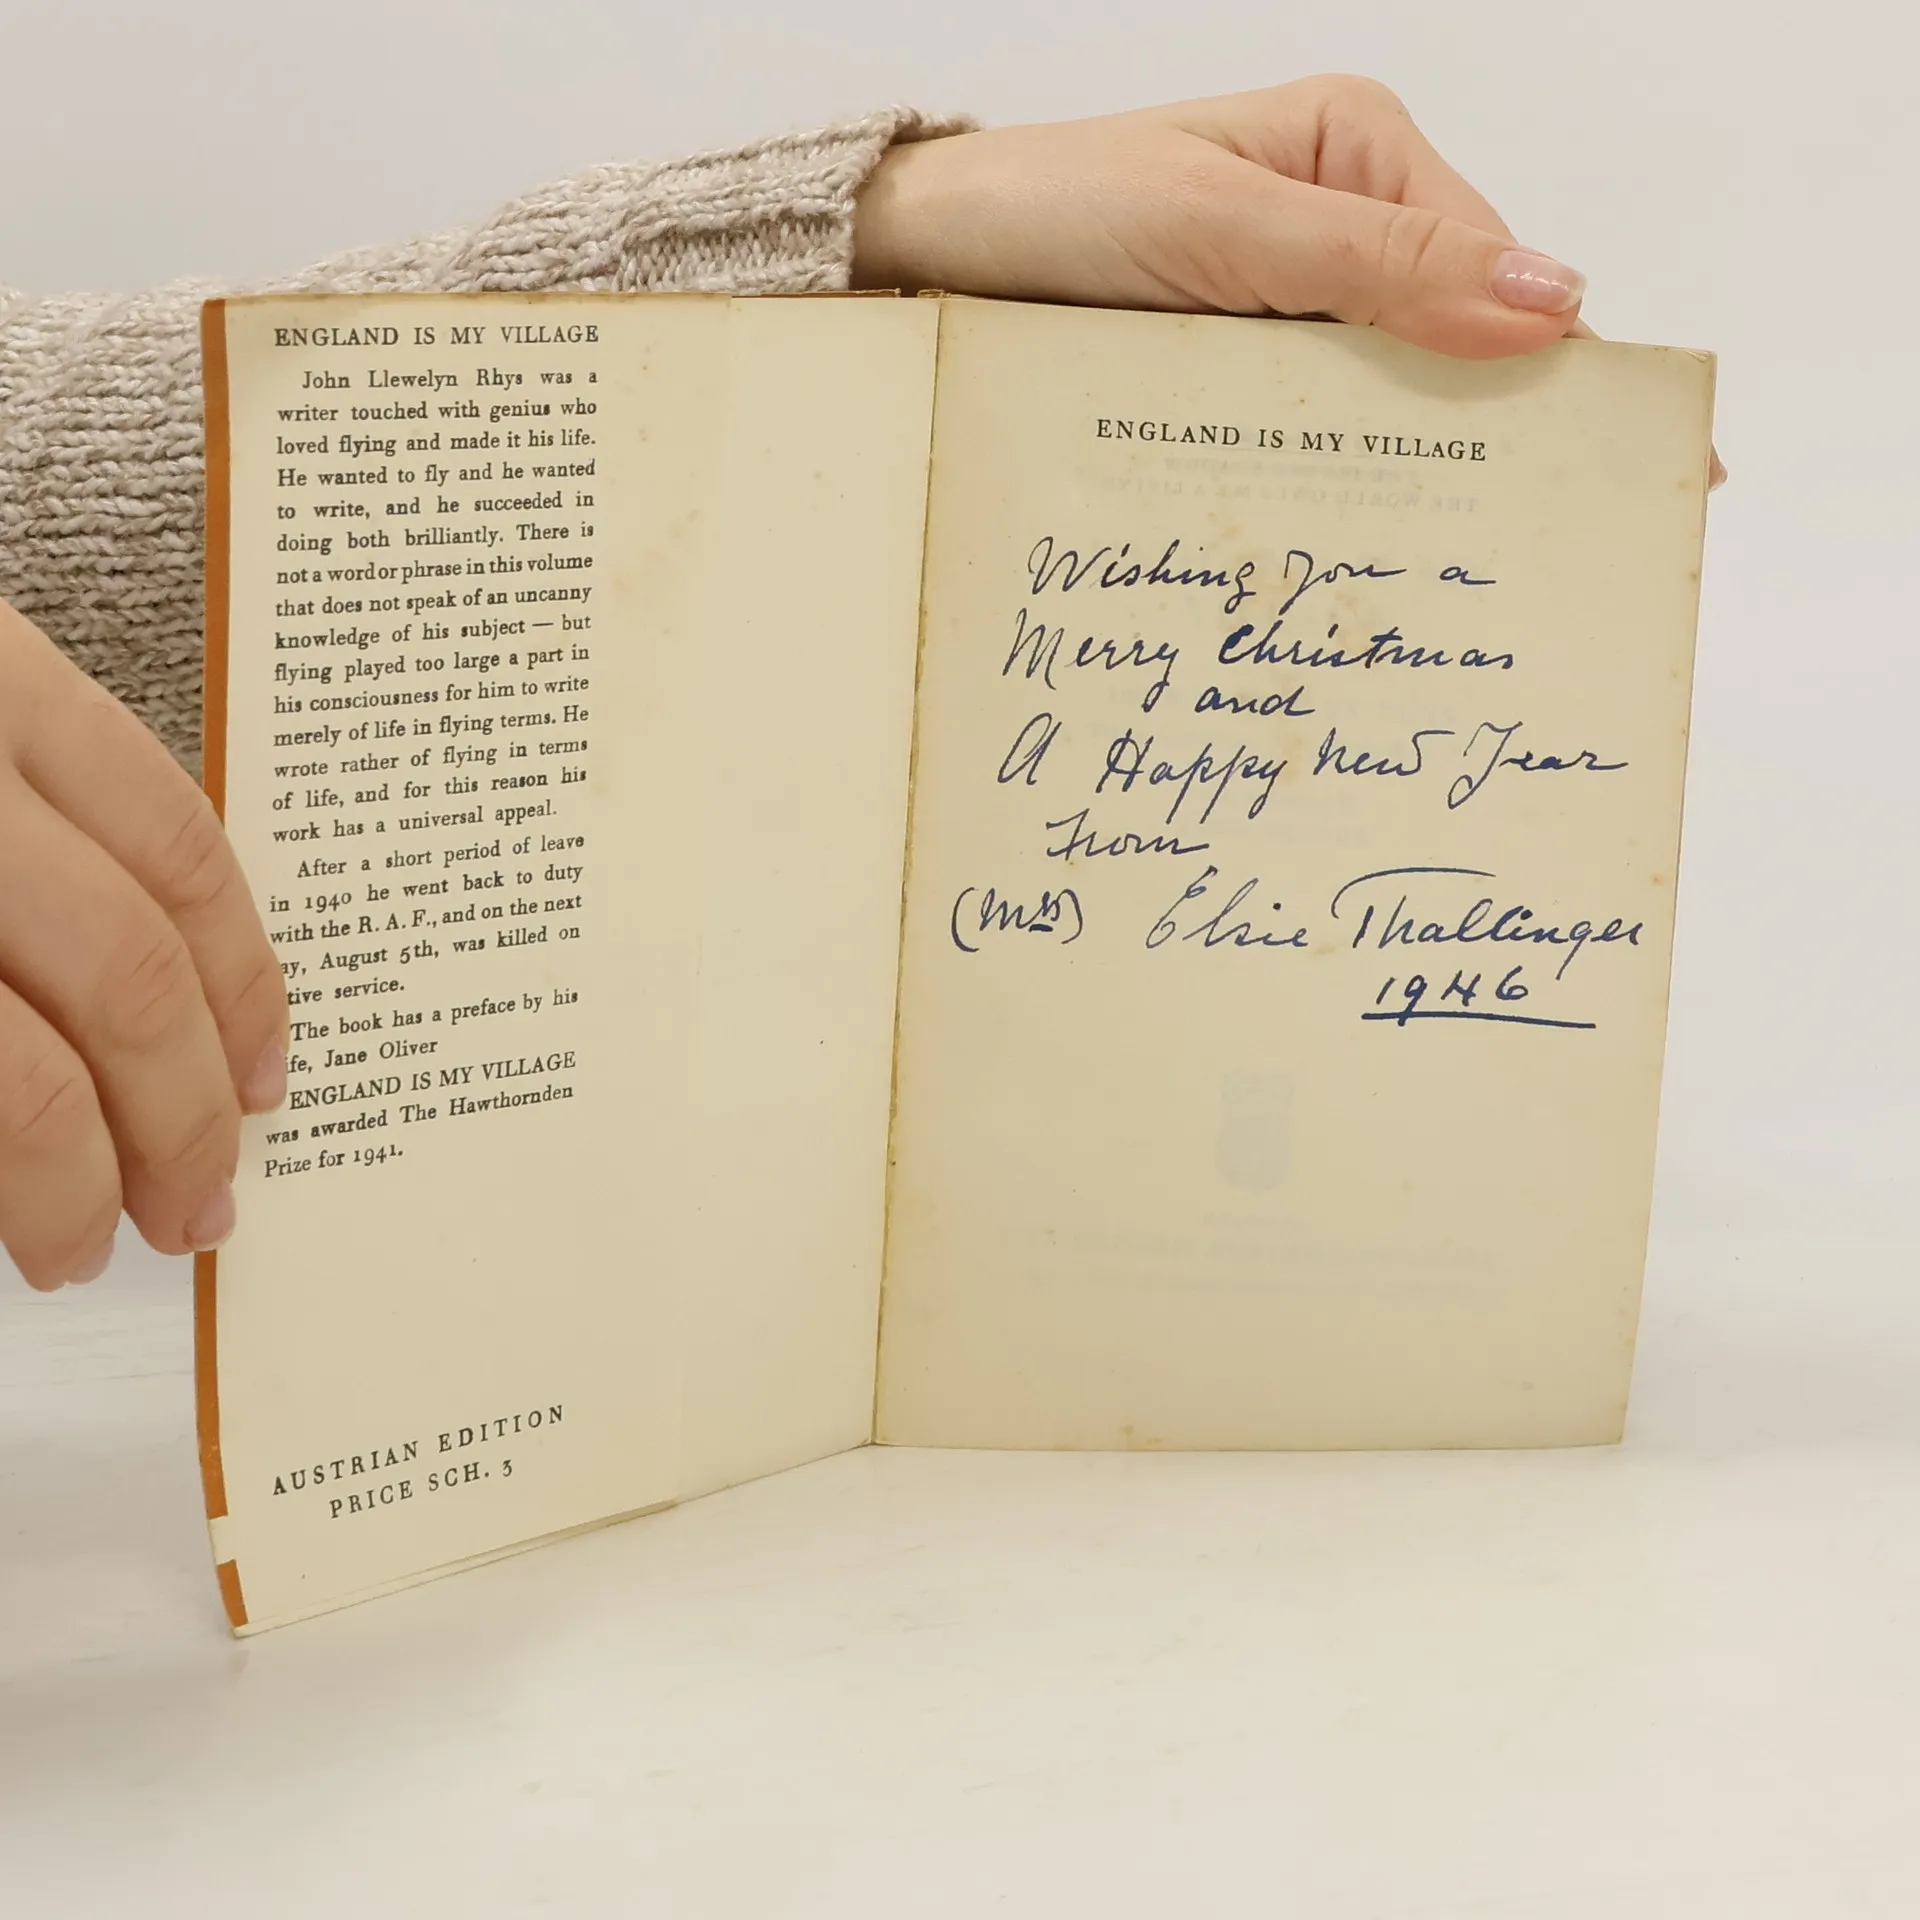 ENGLAND IS MY VILLAGE
John Llewelyn Rhys was a
writer touched with genius who
loved flying and made it his life.
He wanted to fly and he wanted
to write, and he succeeded in
doing both brilliantly. There is
not a word or phrase in this volume
that does not speak of an uncanny
knowledge of his subject — but
flying played too large a part in
his consciousness for him to write
merely of life in flying terms. He
wrote rather of flying in terms
of life, and for this reason his
work has a universal appeal.
After a short period of leave
in 1940 he went back to duty
with the R. A. F., and on the next
ay, August 5th, was killed on
tive service.
The book has a preface by his
ife, Jane Oliver
ENGLAND IS MY VILLAGE
was awarded The Hawthornden
Prize for 1941.
AUSTRIAN EDITION
PRICE SCH. 3
ENGLAND IS MY VILLAGE
Wishing you a
Merry Christmas
and
A Happy New Year
From
(Mrs) Elsie Thallinger
1946